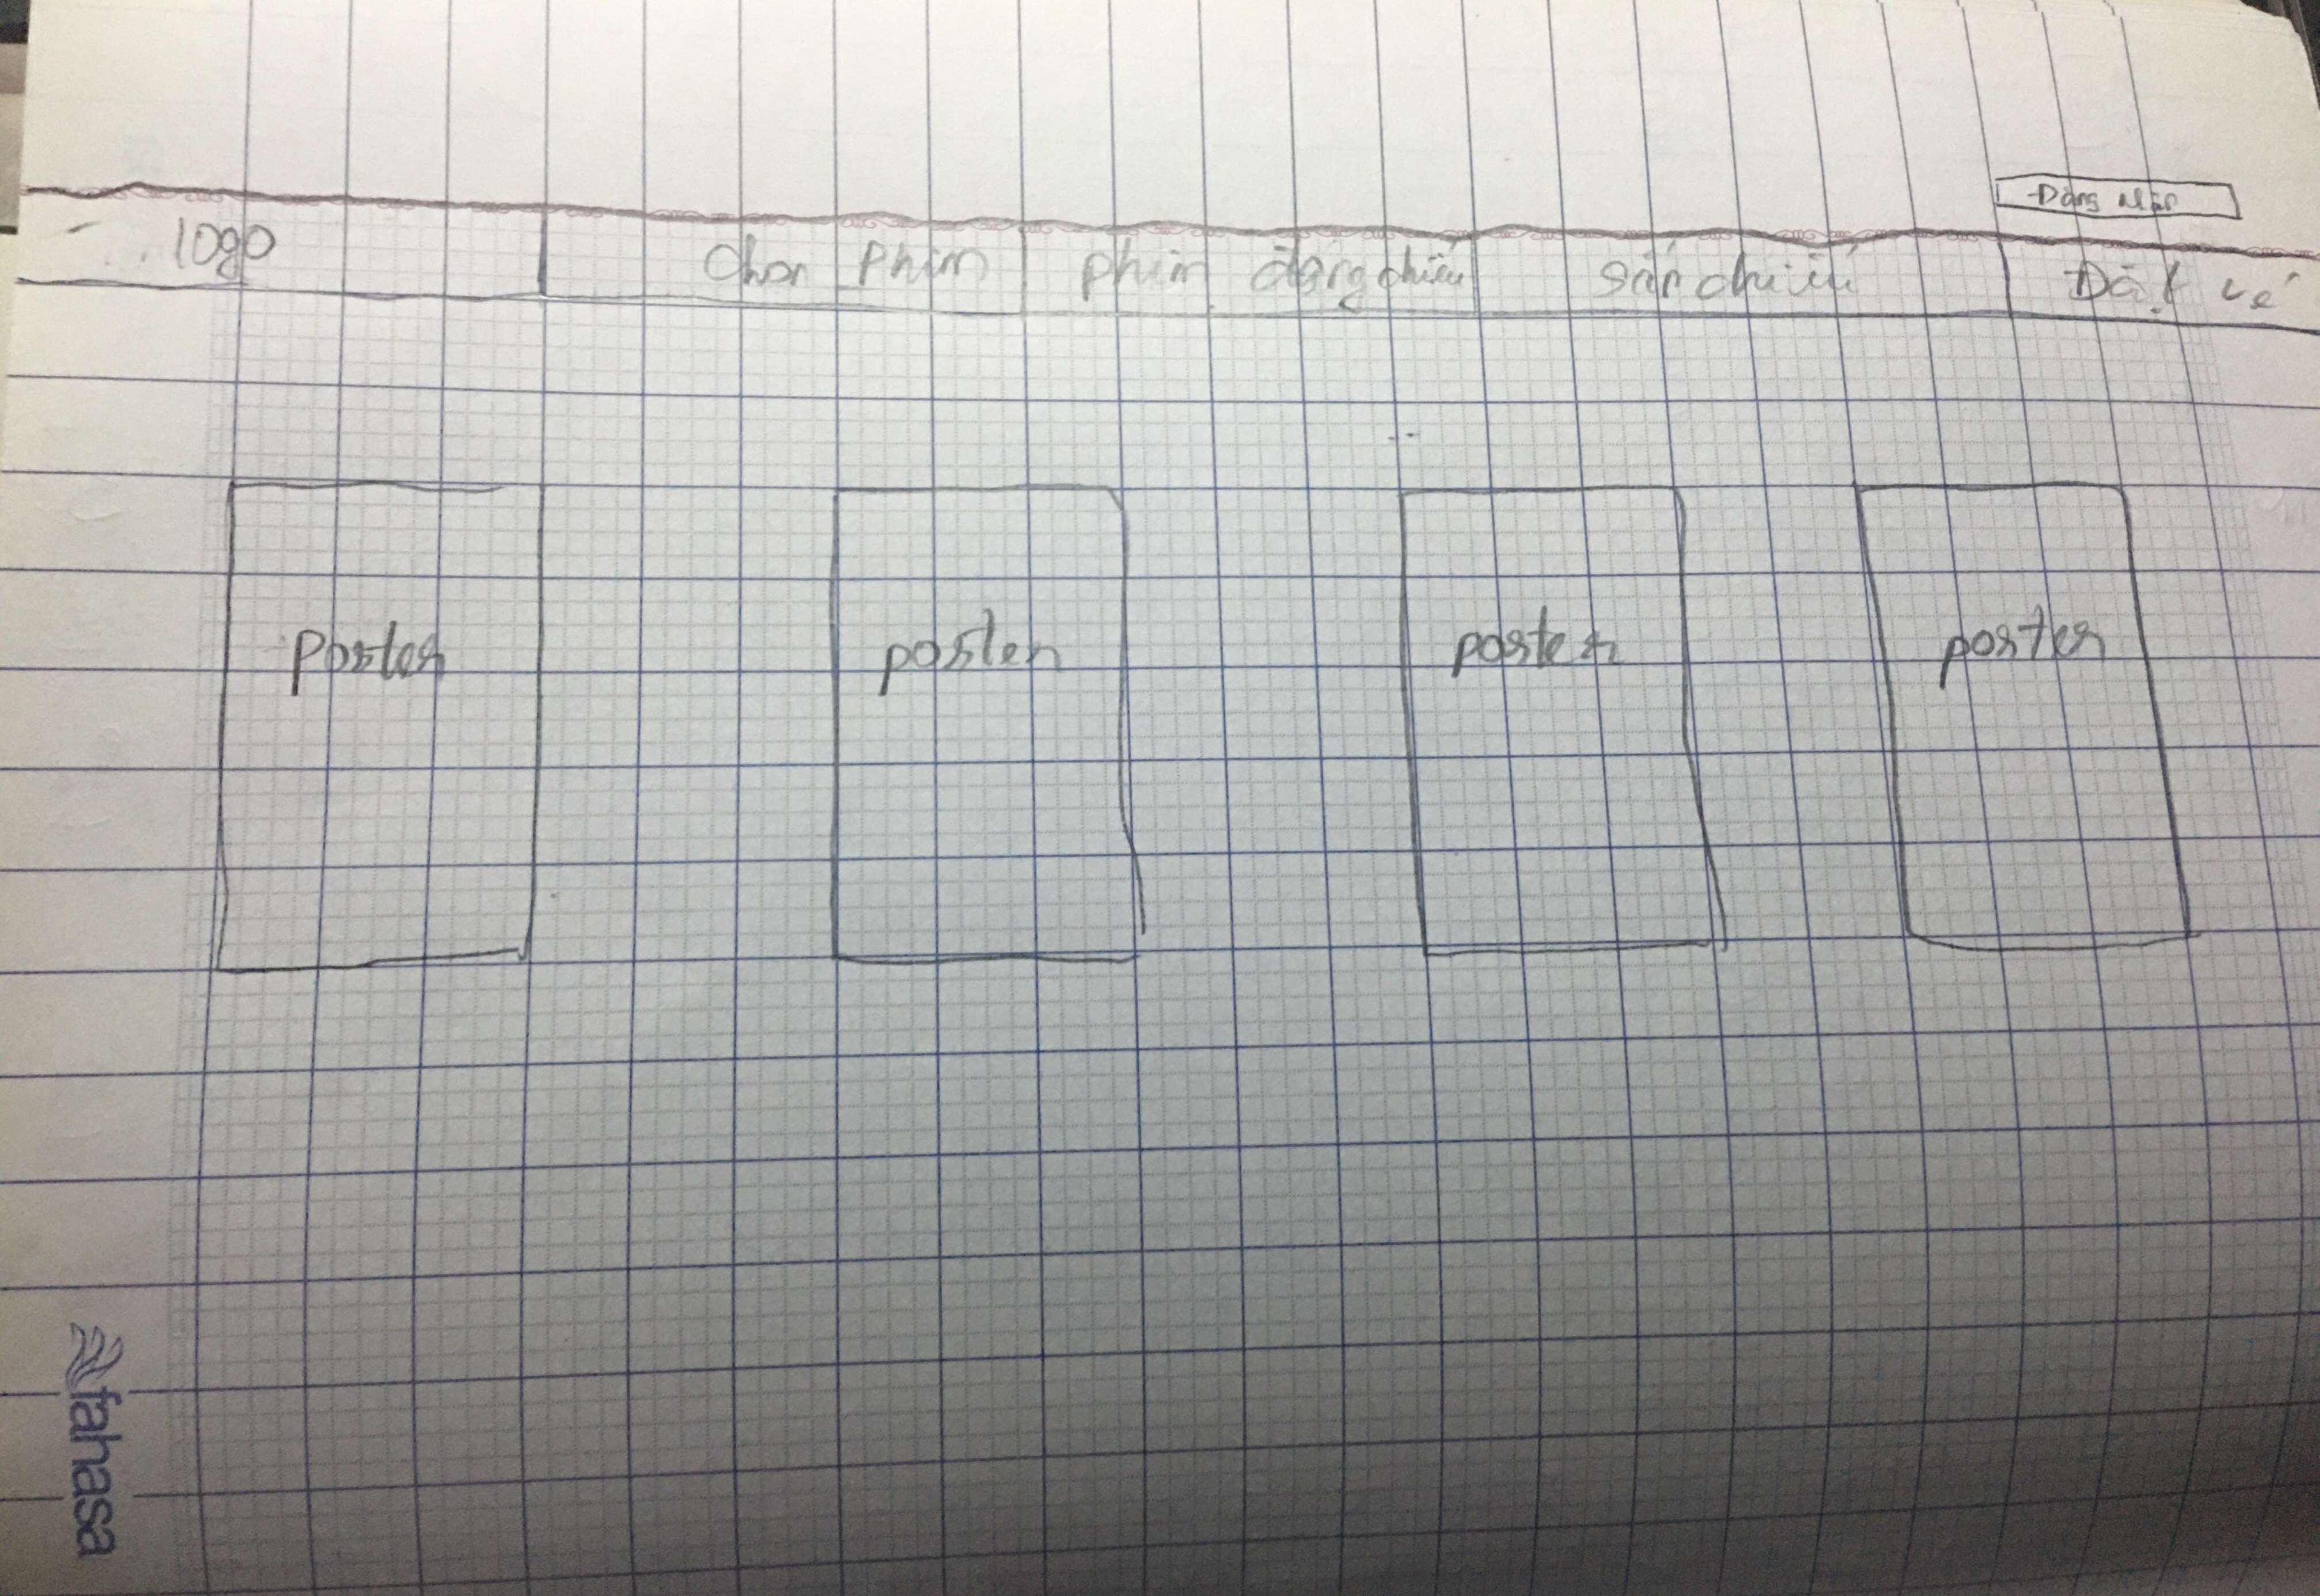 Đăng nhập
logo chọn phim phim đang chiếu sắp chiếu Đặt vé
poster poster poster poster
fahasa